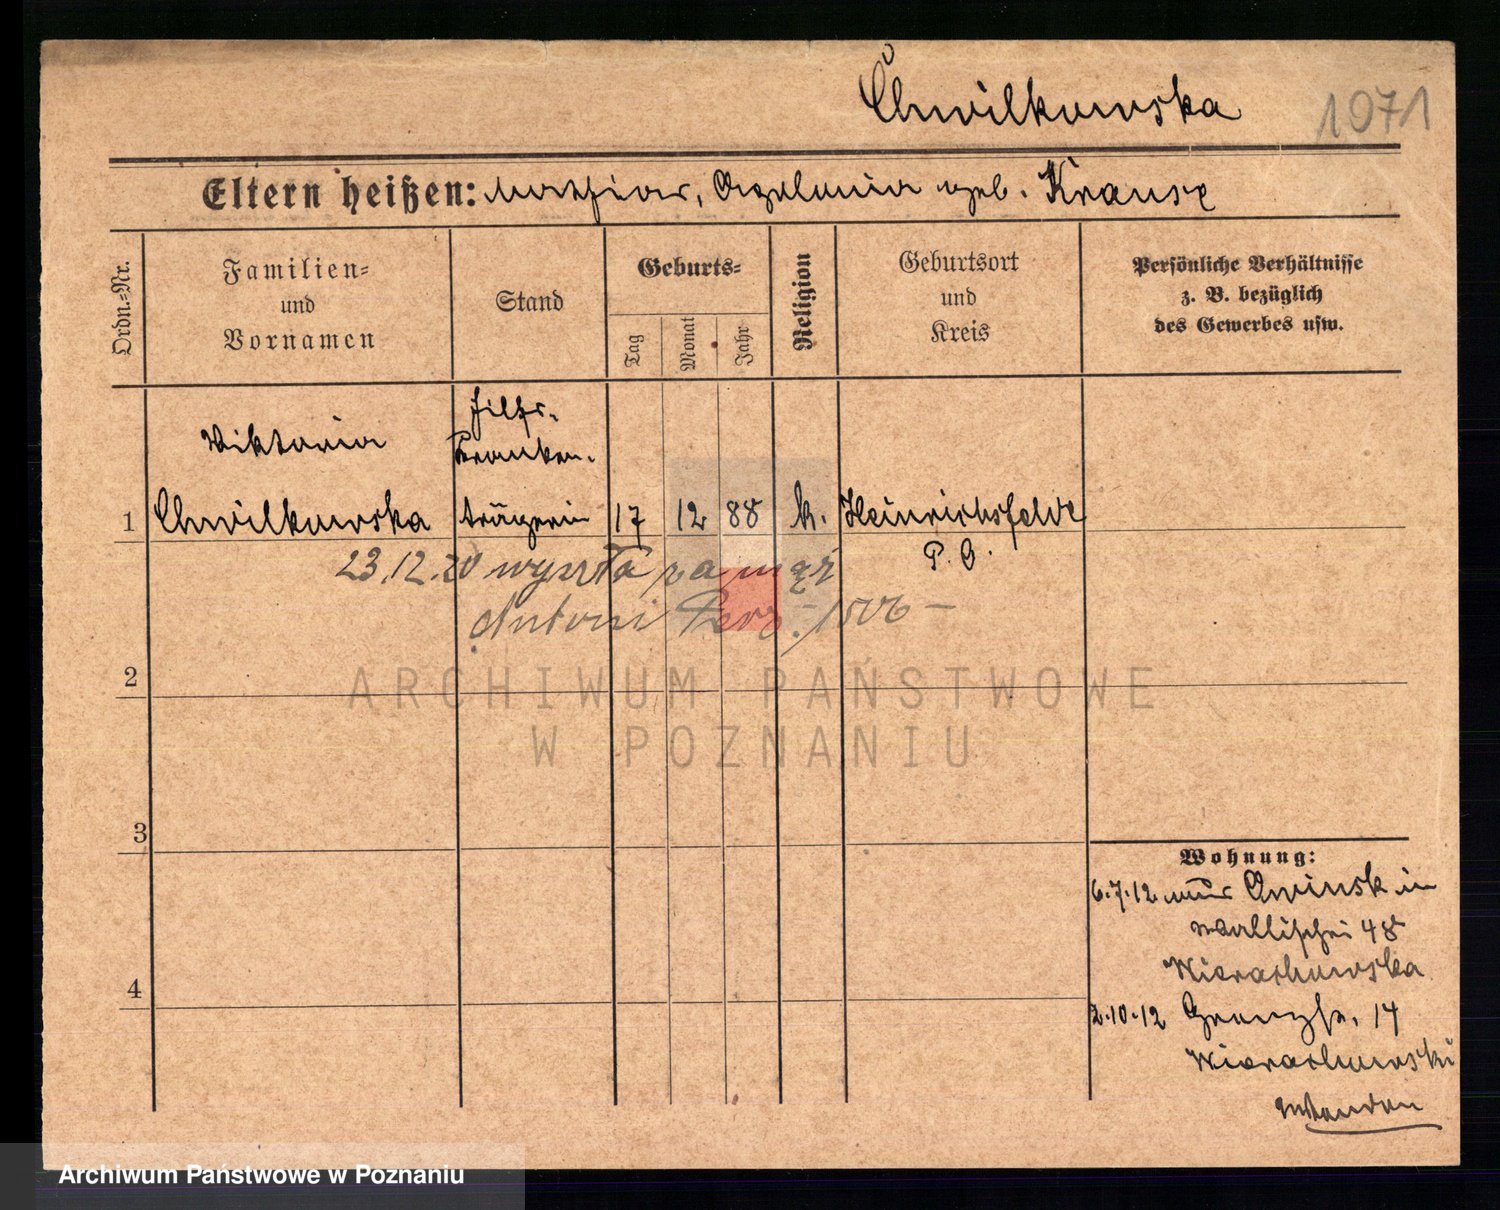 Chwilkowska 1971
Eltern heißen: Mathias, Apolonia geb. Krause
Ordn.=Nr.
Familien=
und
Vornamen
Stand
Geburts=
Tag
Monat
Jahr
Religion
Geburtsort
und
Kreis
Persönliche Verhältnisse
z. B. bezüglich
des Gewerbes usw.
Hilfs-
Kranken-
Viktoria
1 Chwilkowska trägerin 17 12 88 k. Heinrichsfelde
P. O.
23.12.20 wyszła za mąż
Antoni
2
3
4
Wohnung:
6.7.12 in
Wallischei 48
2.10.12 Grenzstr. 14
ARCHIWUM PAŃSTWOWE
W POZNANIU
Archiwum Państwowe w Poznaniu